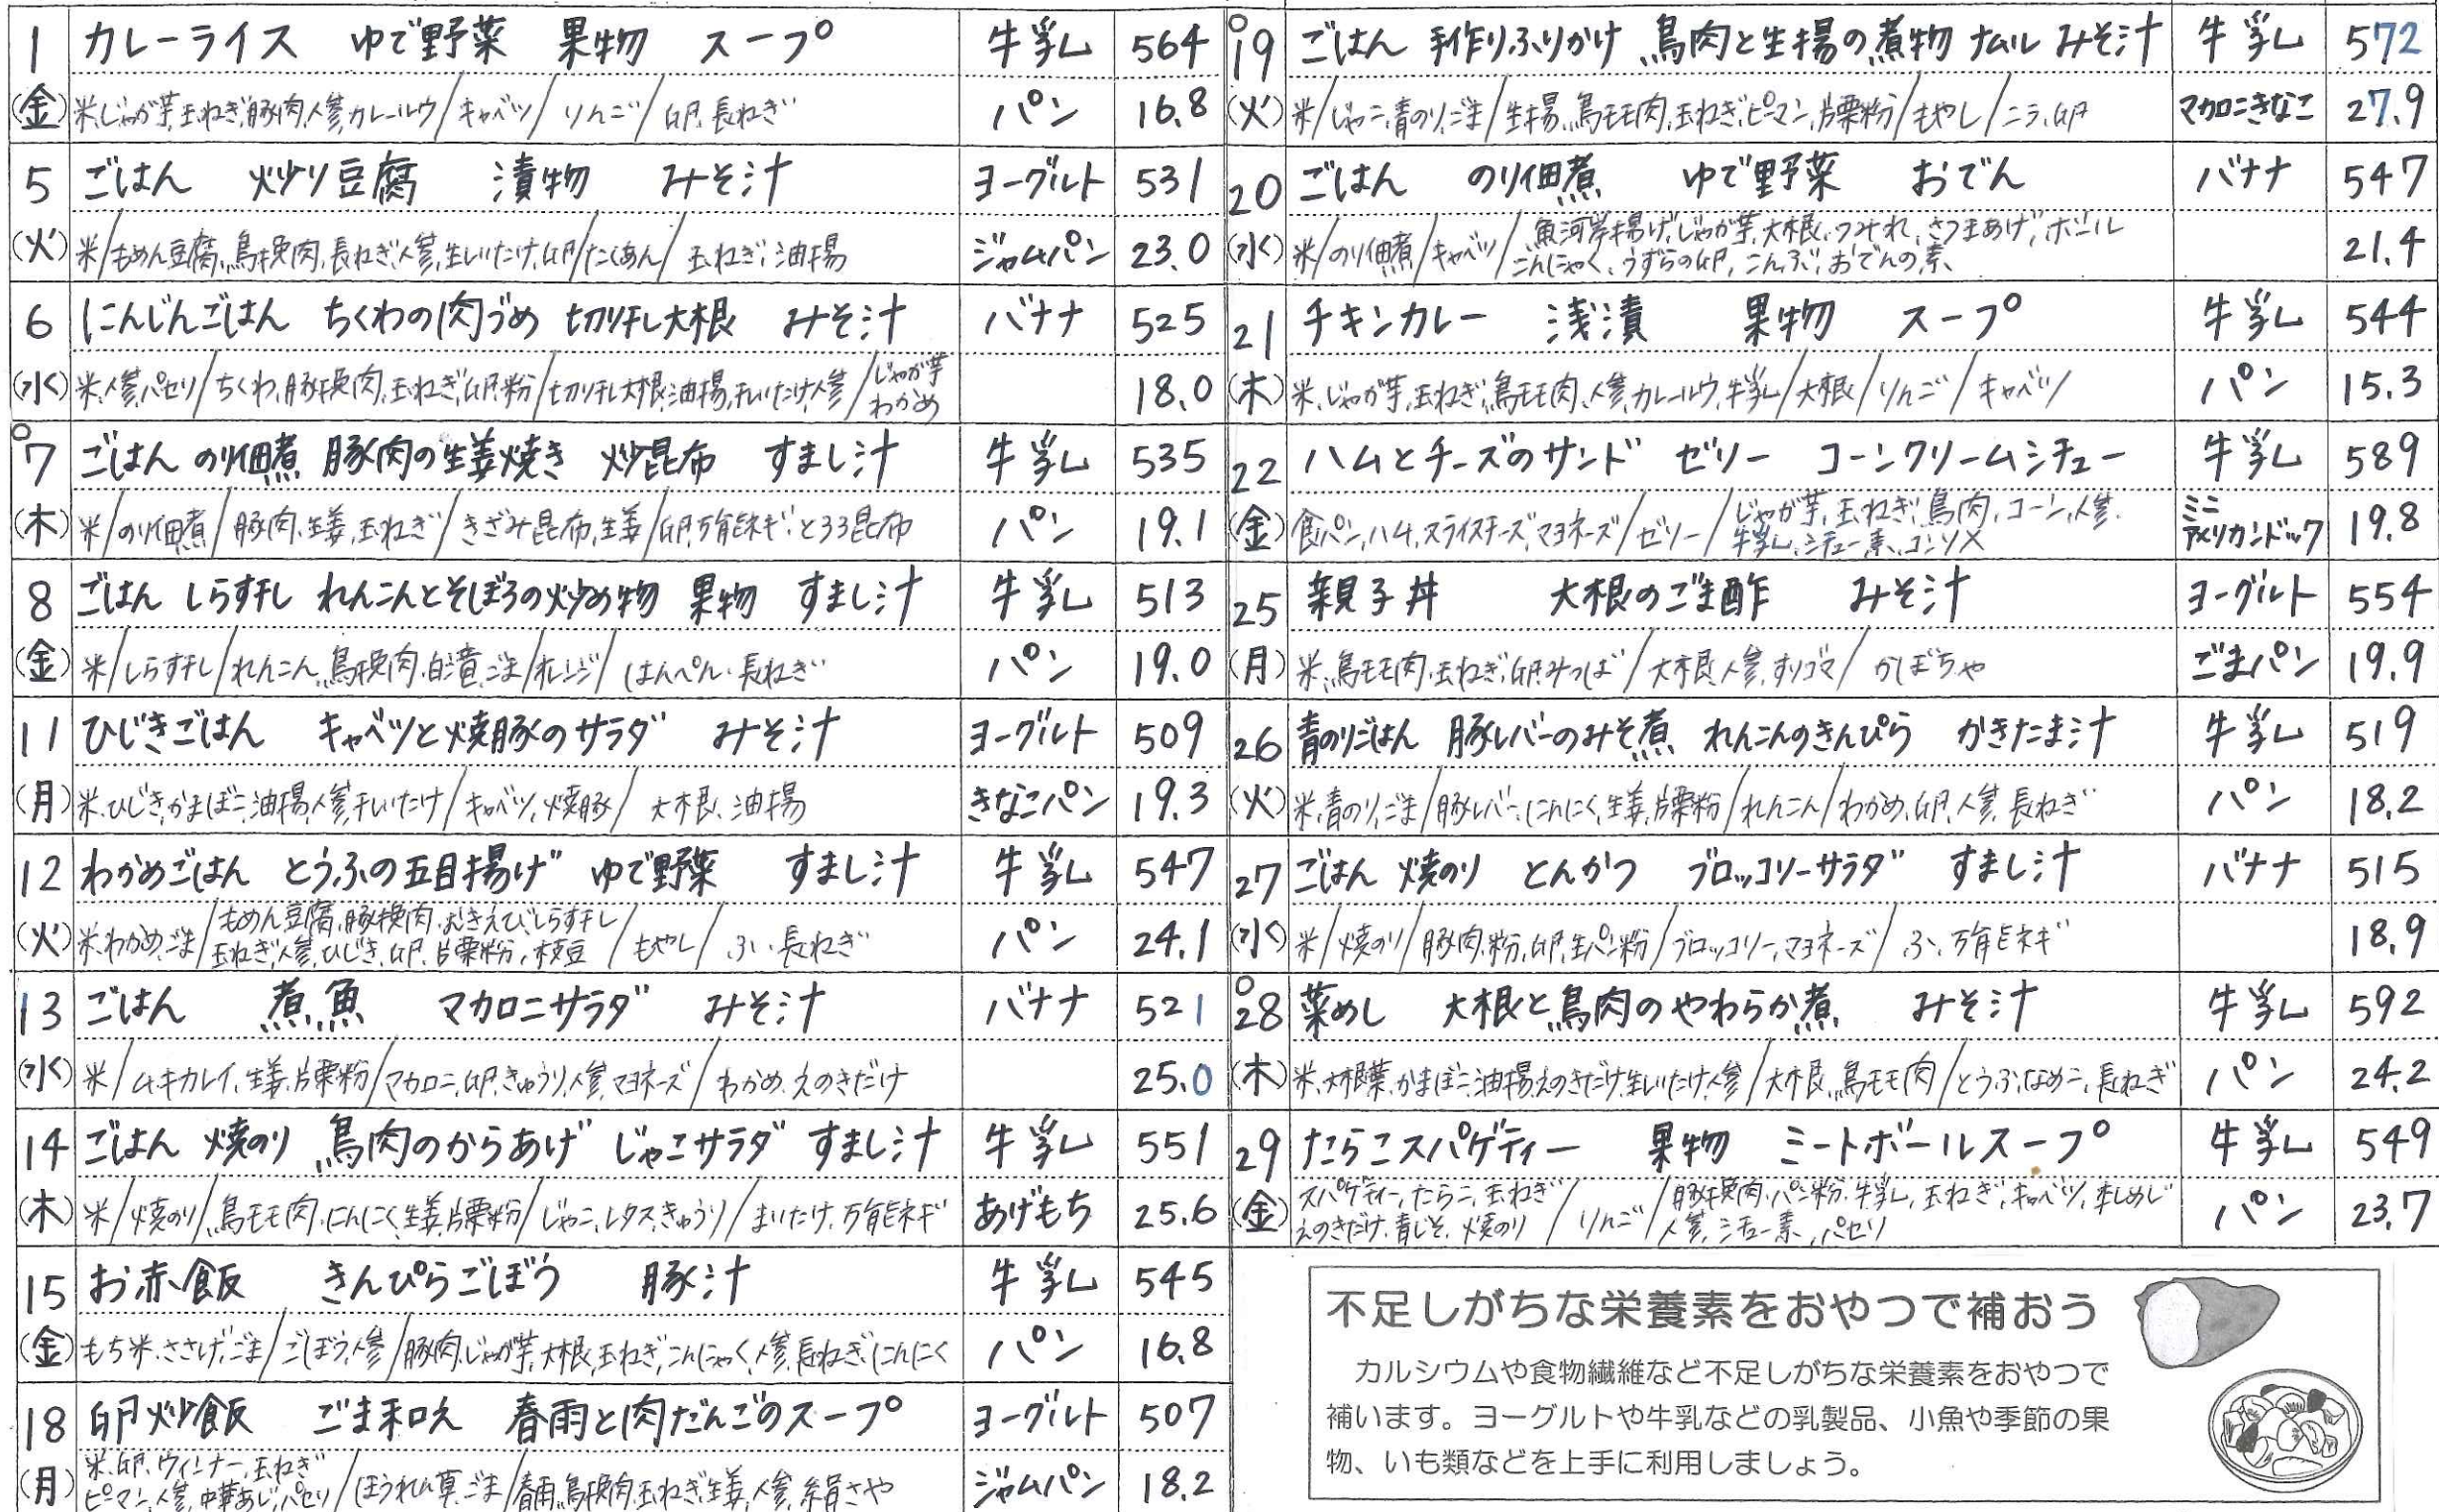 1 カレーライス ゆで野菜 果物 スープ 牛乳 564
(金) 米、じゃが芋、玉ねぎ、豚肉、人参、カレールウ/キャベツ/りんご/卵、長ねぎ パン 16.8
5 ごはん 炒り豆腐 漬物 みそ汁 ヨーグルト 531
(火) 米/もめん豆腐、鳥挽肉、長ねぎ、人参、生しいたけ、卵/たくあん/玉ねぎ、油揚 ジャムパン 23.0
6 にんじんごはん ちくわの肉づめ 切り干し大根 みそ汁 バナナ 525
(水) 米、人参、パセリ/ちくわ、豚挽肉、玉ねぎ、卵、粉/切り干し大根、油揚、干しいたけ、人参/じゃが芋 わかめ 18.0
7 ごはん のり佃煮 豚肉の生姜焼き 炒昆布 すまし汁 牛乳 535
(木) 米/のり佃煮/豚肉、生姜、玉ねぎ/きざみ昆布、生姜/卵、万能ネギ、とろろ昆布 パン 19.1
8 ごはん しらす干し れんこんとそぼろの炒め物 果物 すまし汁 牛乳 513
(金) 米/しらす干し/れんこん、鳥挽肉、白滝、ごま/オレンジ/はんぺん、長ねぎ パン 19.0
11 ひじきごはん キャベツと焼豚のサラダ みそ汁 ヨーグルト 509
(月) 米、ひじき、かまぼこ、油揚、人参、干しいたけ/キャベツ、焼豚/大根、油揚 きなこパン 19.3
12 わかめごはん とうふの五目揚げ ゆで野菜 すまし汁 牛乳 547
(火) 米、わかめ、ごま/もめん豆腐、豚挽肉、おきえび、しらす干し 玉ねぎ、人参、ひじき、卵、片栗粉、枝豆/もやし/ふ、長ねぎ パン 24.1
13 ごはん 煮魚 マカロニサラダ みそ汁 バナナ 521
(水) 米/ムキカレイ、生姜、片栗粉/マカロニ、卵、きゅうり、人参、マヨネーズ/わかめ、えのきだけ 25.0
14 ごはん 焼のり 鳥肉のからあげ じゃこサラダ すまし汁 牛乳 551
(木) 米/焼のり/鳥モモ肉、にんにく、生姜、片栗粉/じゃこ、レタス、きゅうり/まいたけ、万能ネギ あげもち 25.6
15 お赤飯 きんぴらごぼう 豚汁 牛乳 545
(金) もち米、ささげ、ごま/ごぼう、人参/豚肉、じゃが芋、大根、玉ねぎ、こんにゃく、人参、長ねぎ、にんにく パン 16.8
18 卵炒飯 ごま和え 春雨と肉だんごのスープ ヨーグルト 507
(月) 米、卵、ウィンナー、玉ねぎ ピーマン、人参、中華あじ、パセリ/ほうれん草、ごま/春雨、鳥挽肉、玉ねぎ、生姜、人参、絹さや ジャムパン 18.2
19 ごはん 手作りふりかけ 鳥肉と生揚の煮物 ナムル みそ汁 牛乳 572
(火) 米/じゃこ、青のり、ごま/生揚、鳥モモ肉、玉ねぎ、ピーマン、片栗粉/もやし/ニラ、卵 マカロニきなこ 27.9
20 ごはん のり佃煮 ゆで野菜 おでん バナナ 547
(水) 米/のり佃煮/キャベツ/魚河岸揚げ、じゃが芋、大根、つみれ、さつまあげ、ボール こんにゃく、うずらの卵、こんぶ、おでんの素 21.4
21 チキンカレー 浅漬 果物 スープ 牛乳 544
(木) 米、じゃが芋、玉ねぎ、鳥モモ肉、人参、カレールウ、牛乳/大根/りんご/キャベツ/ パン 15.3
22 ハムとチーズのサンド ゼリー コーンクリームシチュー 牛乳 589
(金) 食パン、ハム、スライスチーズ、マヨネーズ/ゼリー/じゃが芋、玉ねぎ、鳥肉、コーン、人参、牛乳、シチュー素、コンソメ ミニアメリカンドック 19.8
25 親子丼 大根のごま酢 みそ汁 ヨーグルト 554
(月) 米、鳥モモ肉、玉ねぎ、卵、みつば/大根、人参、すりゴマ/かぼちゃ ごまパン 19.9
26 青のりごはん 豚レバーのみそ煮 れんこんのきんぴら かきたま汁 牛乳 519
(火) 米、青のり、ごま/豚レバー、にんにく、生姜、片栗粉/れんこん/わかめ、卵、人参、長ねぎ パン 18.2
27 ごはん 焼のり とんかつ ブロッコリーサラダ すまし汁 バナナ 515
(水) 米/焼のり/豚肉、粉、卵、生パン粉/ブロッコリー、マヨネーズ/ふ、万能ネギ 18.9
28 菜めし 大根と鳥肉のやわらか煮 みそ汁 牛乳 592
(木) 米、大根葉、かまぼこ、油揚、えのきだけ、生しいたけ、人参/大根、鳥モモ肉/とうふ、なめこ、長ねぎ パン 24.2
29 たらこスパゲティー 果物 ミートボールスープ 牛乳 549
(金) スパゲティー、たらこ、玉ねぎ えのきだけ、青じそ、焼のり/りんご/豚挽肉、パン粉、牛乳、玉ねぎ、キャベツ、本しめじ 人参、シチュー素、パセリ パン 23.7
不足しがちな栄養素をおやつで補おう
カルシウムや食物繊維など不足しがちな栄養素をおやつで
補います。ヨーグルトや牛乳などの乳製品、小魚や季節の果
物、いも類などを上手に利用しましょう。